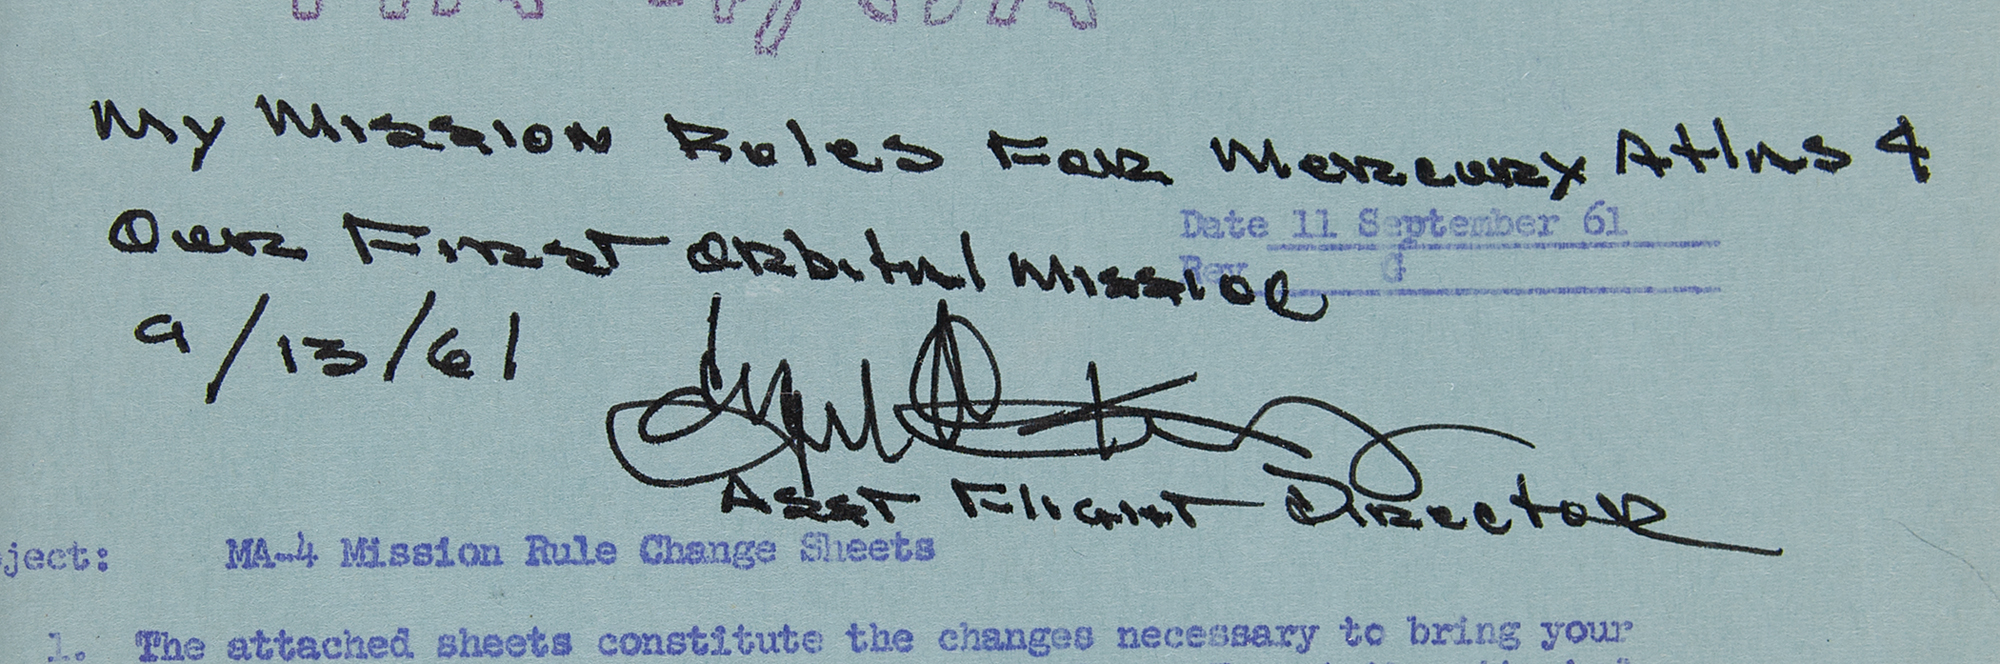 My Mission Rules For Mercury Atlas 4
Date 11 September 61
Our First Orbital Mission
Rev G
9/13/61
Asst Flight Director
ject: MA-4 Mission Rule Change Sheets
1. The attached sheets constitute the changes necessary to bring your